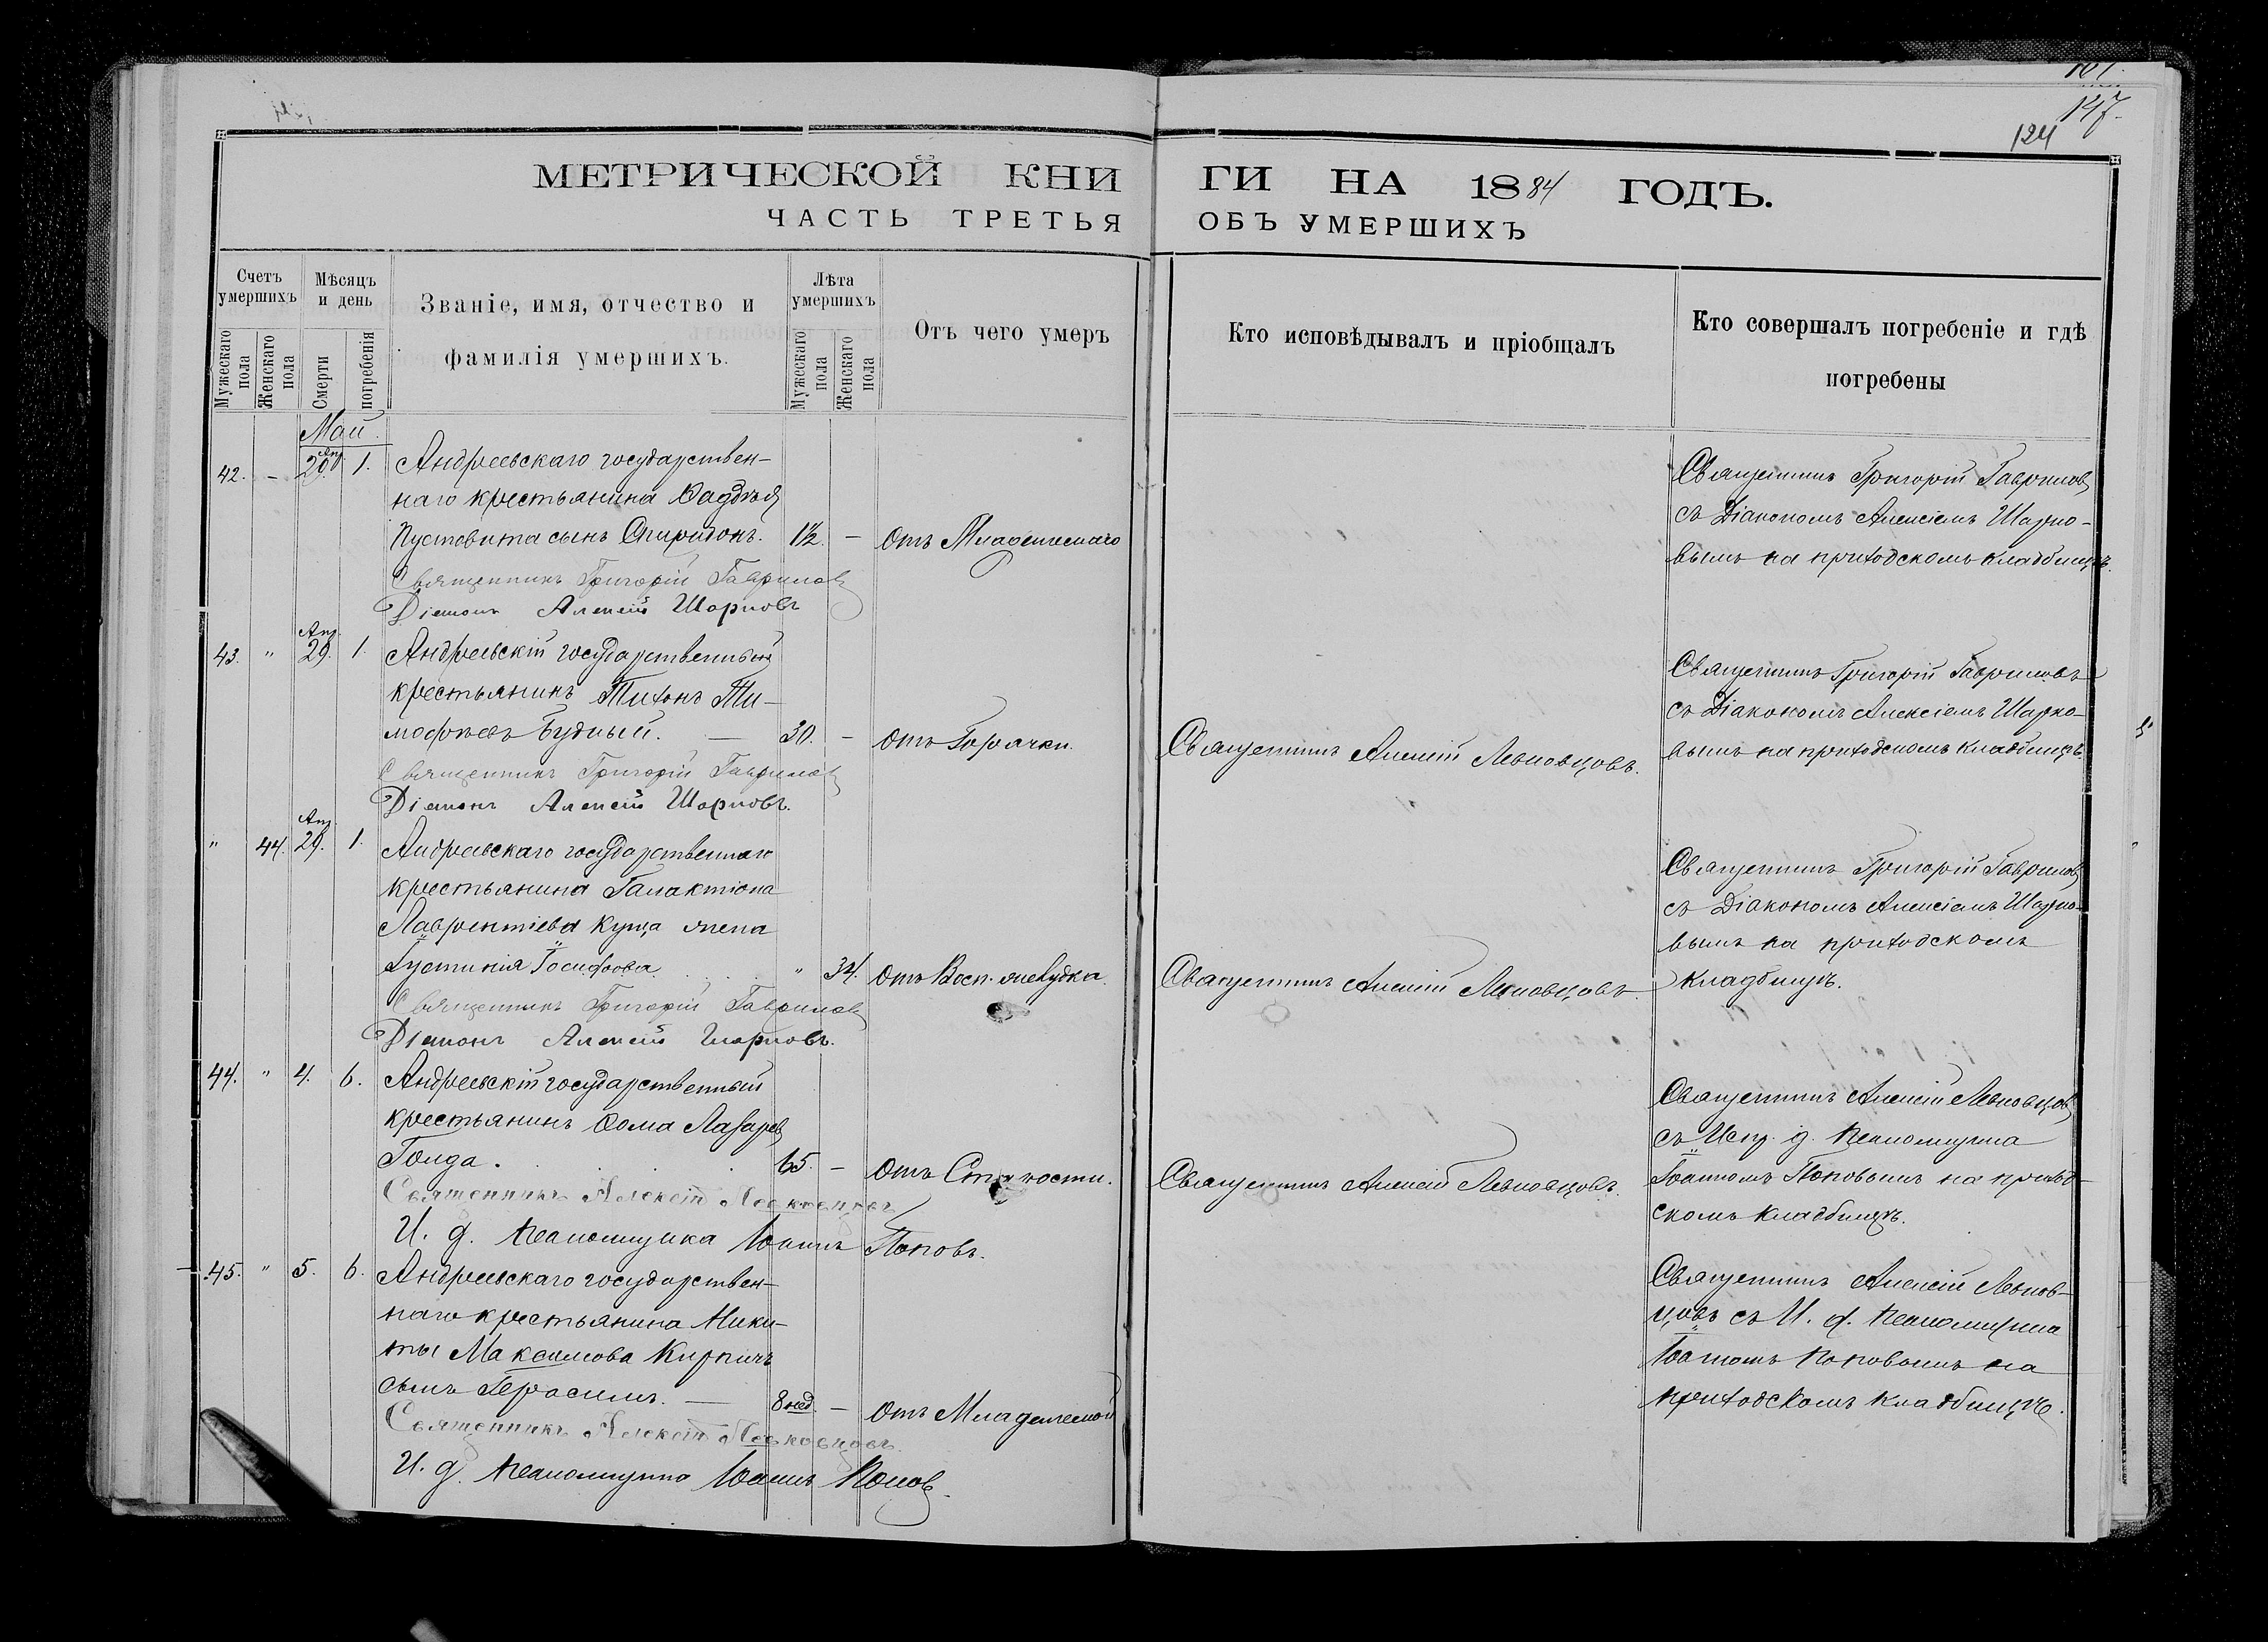 147.
124
МЕТРИЧЕСКОЙ КНИГИ НА 1884 ГОДЪ.
ЧАСТЬ ТРЕТЬЯ ОБЪ УМЕРШИХЪ
Счетъ умершихъ
Мужескаго пола
Женскаго пола
Мѣсяцъ и день
Смерти
погребенія
Званіе, имя, отчество и
фамилія умершихъ.
Лѣта умершихъ
Мужескаго пола
Женскаго пола
Отъ чего умеръ
Кто исповѣдывалъ и пріобщалъ
Кто совершалъ погребеніе и гдѣ
погребены
Май
42. – Ап. 29. 1.
Андреевскаго государствен-
наго крестьянина Фаддѣя
Пустовита сынъ Спиридонъ. 1½. – Отъ Младенческаго
Священникъ Григорій Гавриловъ
съ Діакономъ Алексіемъ Шарко-
вымъ на приходскомъ кладбищѣ.
Священникъ Григорій Гавриловъ
Діаконъ Алексій Шарковъ
43. " Апр. 29. 1.
Андреевскій государственный
крестьянинъ Тихонъ Ти-
мофѣевъ Будный. — 30. – Отъ Горячки.
Священникъ Алексій Левковцовъ.
Священникъ Григорій Гавриловъ
съ Діакономъ Алексіемъ Шарко-
вымъ на приходскомъ кладбищѣ.
Священникъ Григорій Гавриловъ
Діаконъ Алексій Шарковъ.
" 44. Апр. 29. 1.
Андреевскаго государственнаго
крестьянина Галактіона
Лаврентіева Куща жена
Іустинія Іосифова. " 34. Отъ Восп. желудка.
Священникъ Алексій Левковцовъ.
Священникъ Григорій Гавриловъ
съ Діакономъ Алексіемъ Шарко-
вымъ на приходскомъ
кладбищѣ.
Священникъ Григорій Гавриловъ
Діаконъ Алексій Шарковъ.
44. " 4. 6.
Андреевскій государственный
крестьянинъ Фома Лазаревъ
Гонда. 65. – Отъ Старости.
Священникъ Алексій Левковцовъ.
Священникъ Алексій Левковцовъ
съ Испр. д. Псаломщика
Іоанномъ Поповымъ на приход-
скомъ кладбищѣ.
Священникъ Алексій Левковцовъ
И. д. Псаломщика Іоаннъ Поповъ.
45. " 5. 6.
Андреевскаго государствен-
наго крестьянина Ники-
ты Максимова Кирпичъ
сынъ Герасимъ. — 8 нед. – Отъ Младенческой
Священникъ Алексій Левков-
цовъ съ И. д. Псаломщика
Іоанномъ Поповымъ на
приходскомъ кладбищѣ.
Священникъ Алексій Левковцовъ.
И. д. Псаломщика Іоаннъ Поповъ.